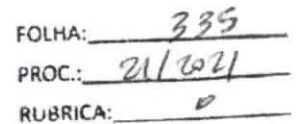 FOLHA: 335
PROC.: 21/2021
RUBRICA: